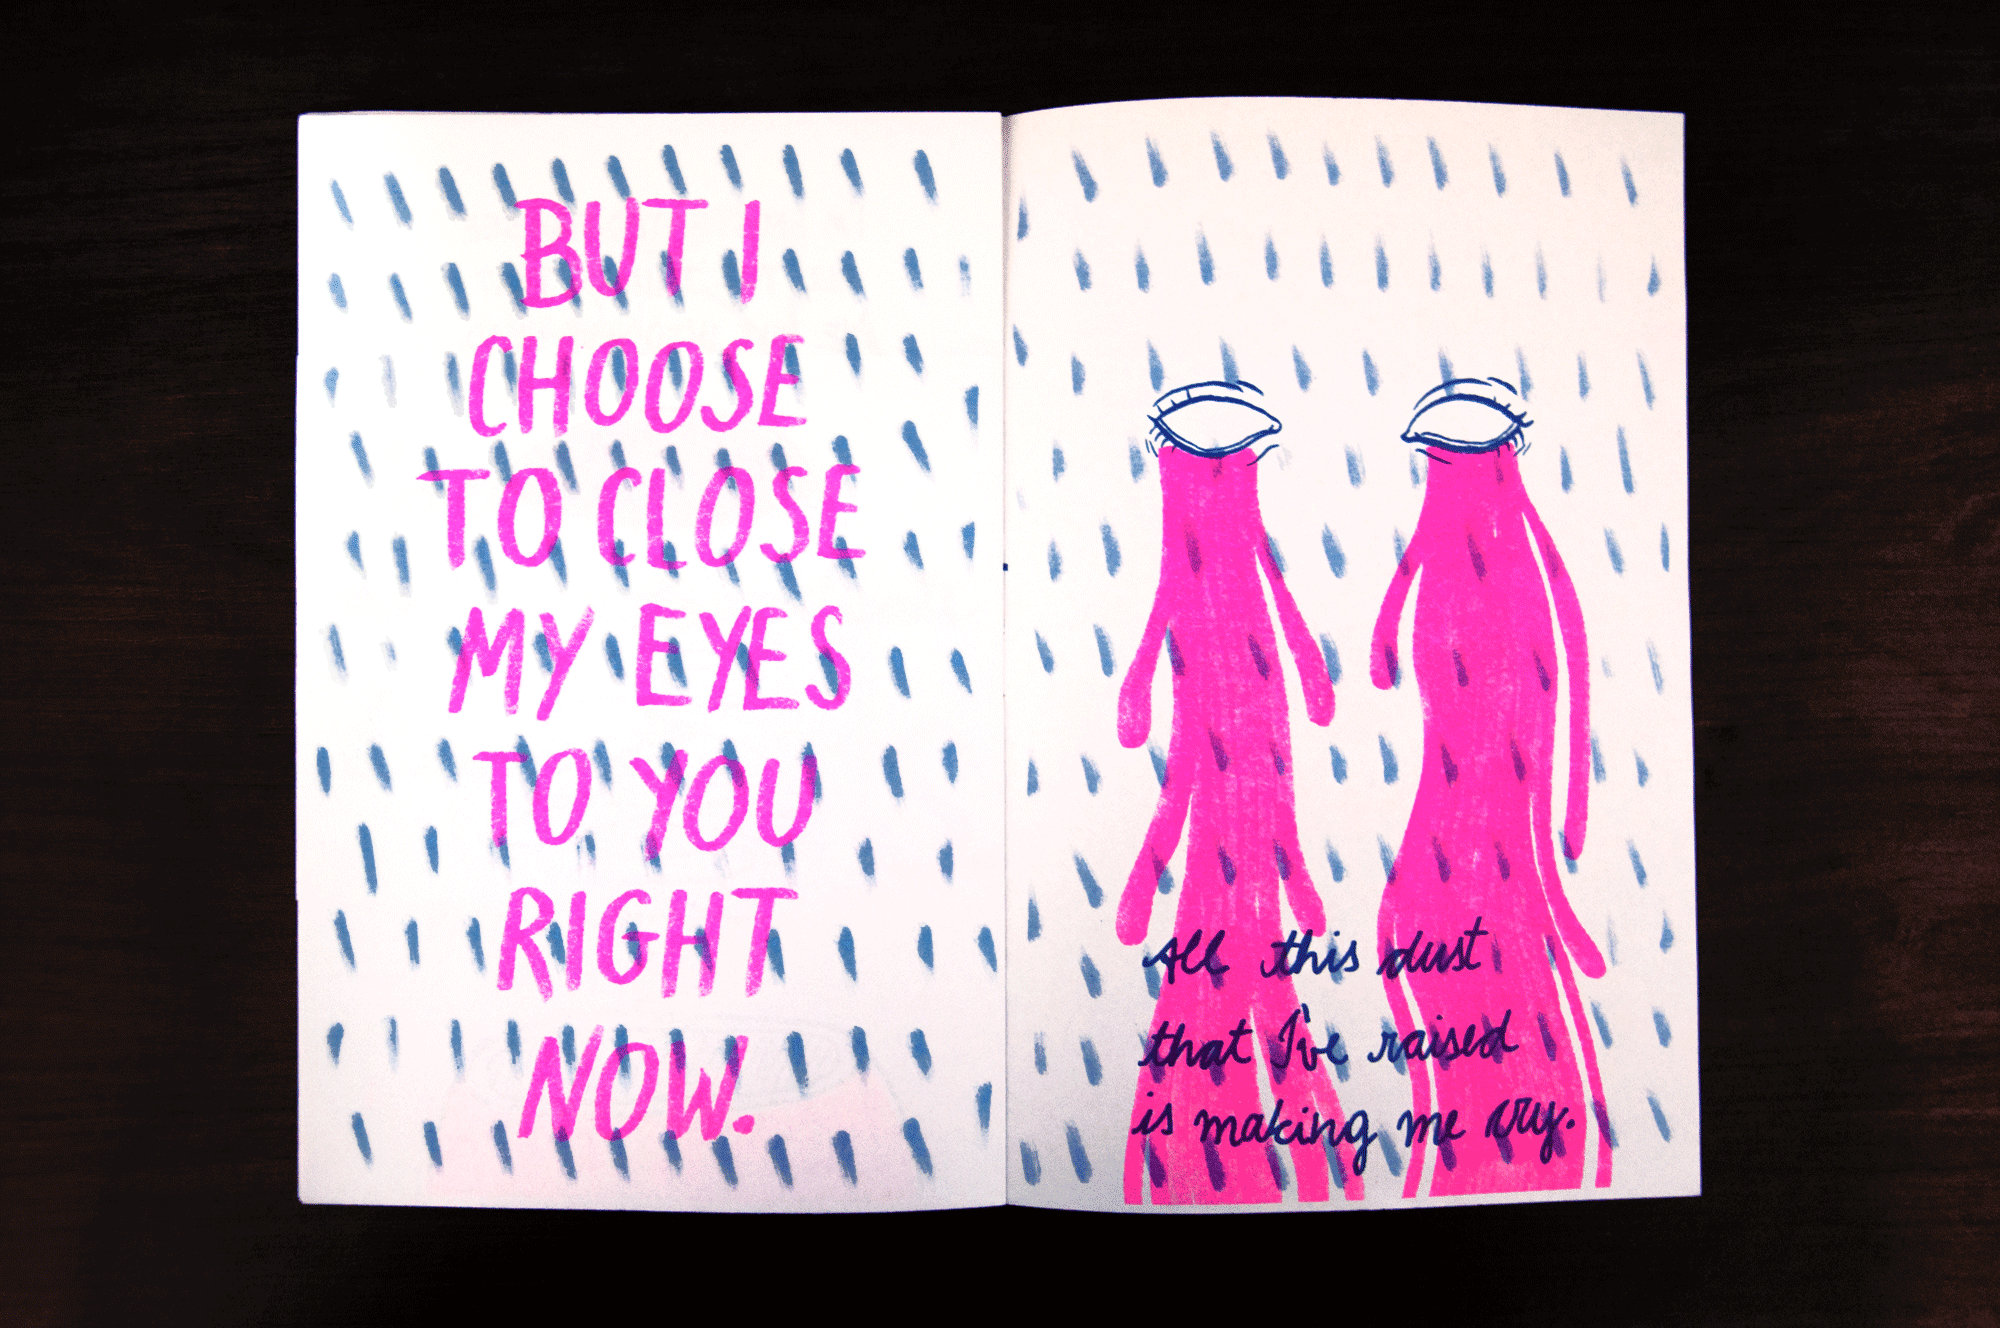 BUT I
CHOOSE
TO CLOSE
MY EYES
TO YOU
RIGHT
NOW.
All this dust
that I've raised
is making me cry.